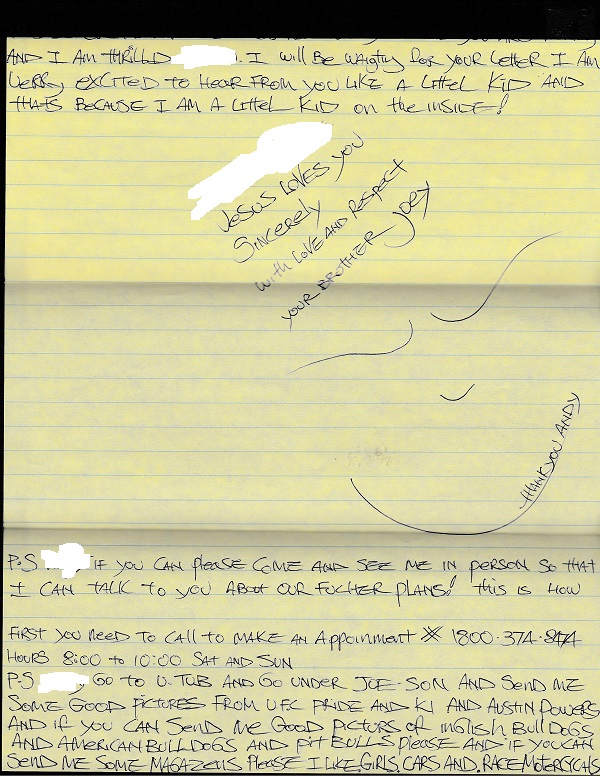 AND I AM thRilliD . I will BE WAigtiNg for YOUR LEttER I AM
VERRy EXCITED to HEAR FROM YOU LIKE A LittEL KiD AND
thAts BECAUSE I AM A LittEL KiD ON the iNSiDE!
JESUS LOVES YOU
SiNCERELY
with LOVE AND RESPECT
YOUR BROTHER JOEY
thANK YOU ANDY
P.S iF YOU CAN PlEASE COME AND SEE ME iN PERSON SO thAt
I CAN TALK to YOU ABOUt OUR FUCHER PLANS! this is HOW
FIRST YOU NEED TO CALL TO MAKE AN AppOiNMENt 1800.374.8474
HOURS 8:00 to 10:00 SAt AND SUN
P.S GO TO U.TUB AND GO UNDER JOE-SON AND SEND ME
SOME GOOD PiCtURES FROM UFC PRiDE AND K1 AND AUStiN POWERS
AND iF YOU CAN SEND ME GOOD PiCtURS OF iNGliSH BUllDOGS
AND AMERiCAN BULLDOGS AND Pit BULLS PLEASE AND iF YOU CAN
SEND ME SOME MAGAZENS PLEASE I LiKE GiRLS, CARS AND RACE MOtERCYCALS